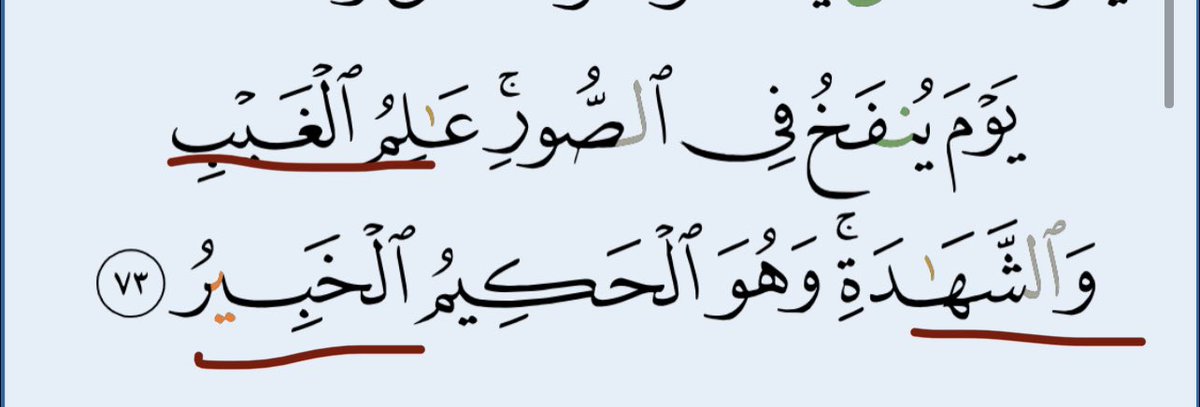 يَوۡمَ يُنفَخُ فِي ٱلصُّورِۚ عَٰلِمُ ٱلۡغَيۡبِ
وَٱلشَّهَٰدَةِۚ وَهُوَ ٱلۡحَكِيمُ ٱلۡخَبِيرُ ٧٣